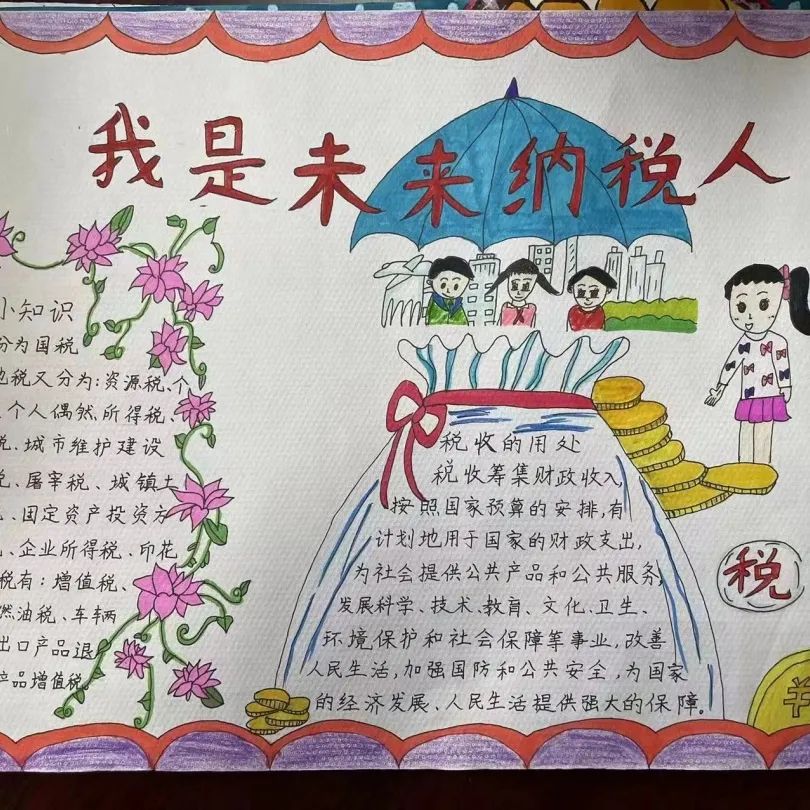 我是未来纳税人
小知识
分为国税
地税又分为:资源税、个
个人偶然所得税、
税、城市维护建设
税、屠宰税、城镇土
、固定资产投资方
、企业所得税、印花
税有:增值税、
燃油税、车辆
出口产品退
产品增值税。
税收的用处
税收筹集财政收入,
按照国家预算的安排,有
计划地用于国家的财政支出,
为社会提供公共产品和公共服务,
发展科学、技术、教育、文化、卫生、
环境保护和社会保障等事业,改善
人民生活,加强国防和公共安全,为国家
的经济发展、人民生活提供强大的保障。
税
¥